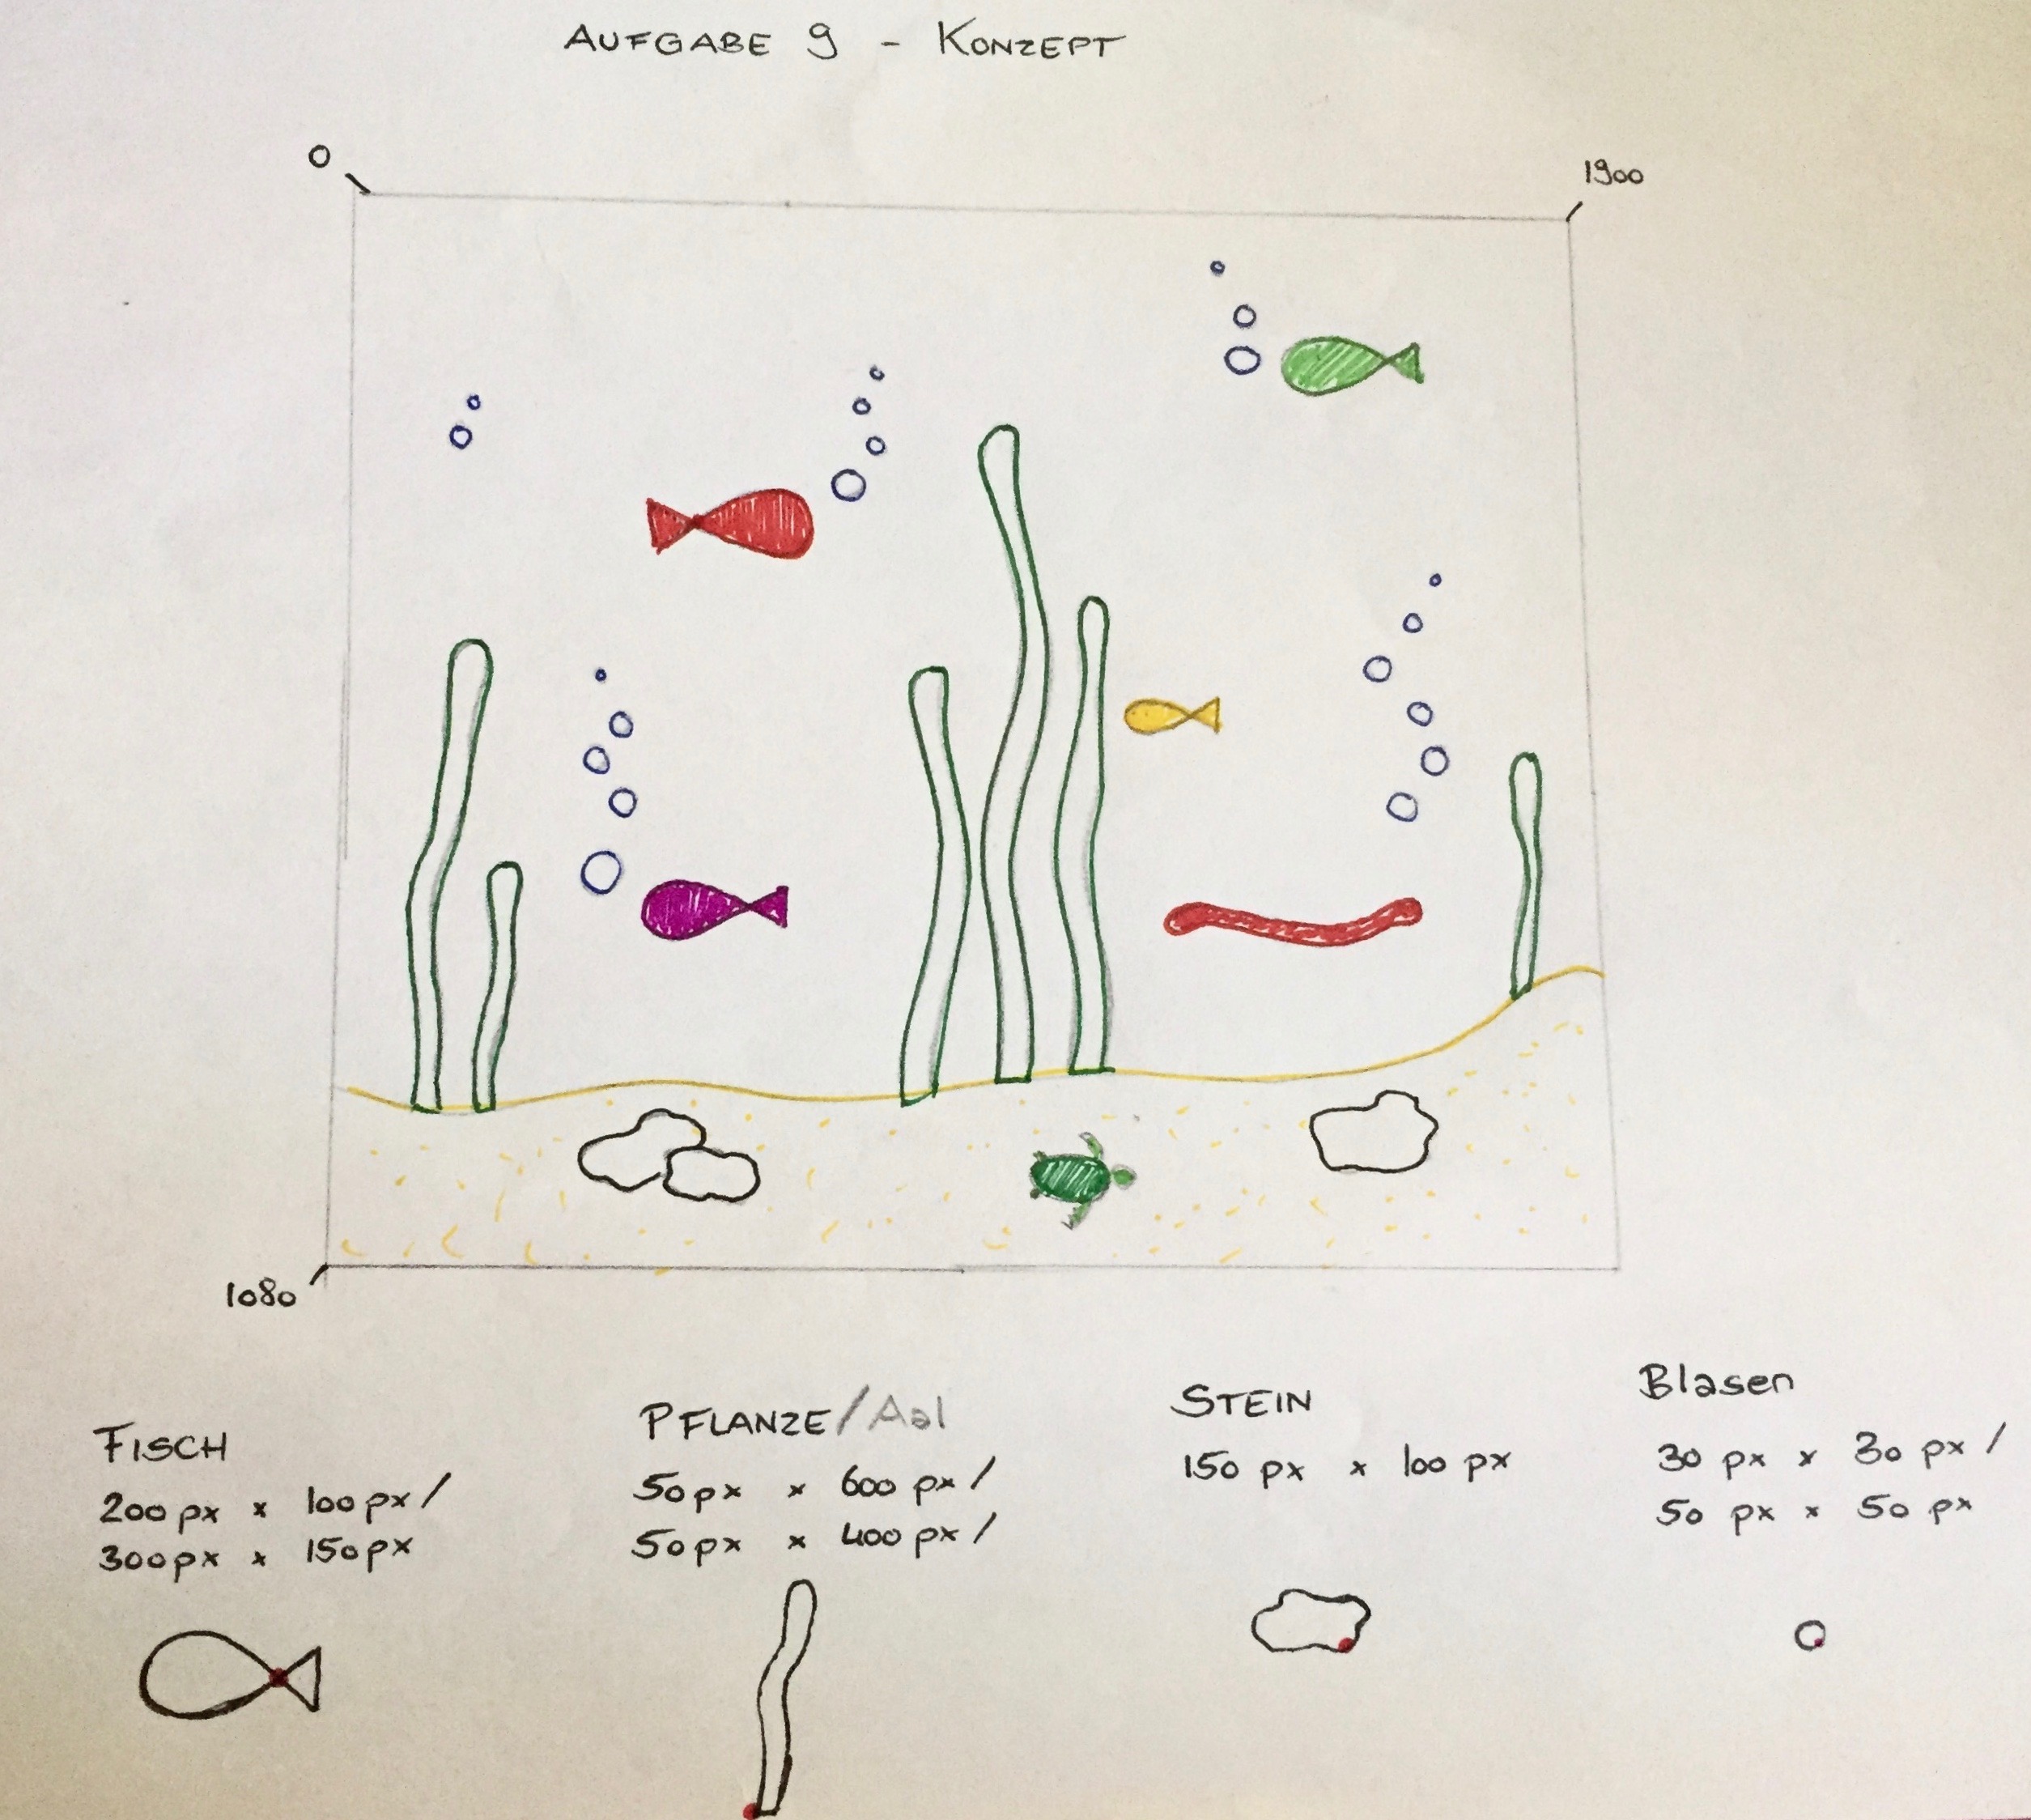 AUFGABE 9 - KONZEPT
0
1900
1080
FISCH
200 px x 100 px /
300 px x 150 px
PFLANZE / Aal
50 px x 600 px /
50 px x 400 px /
STEIN
150 px x 100 px
Blasen
30 px x 30 px /
50 px x 50 px